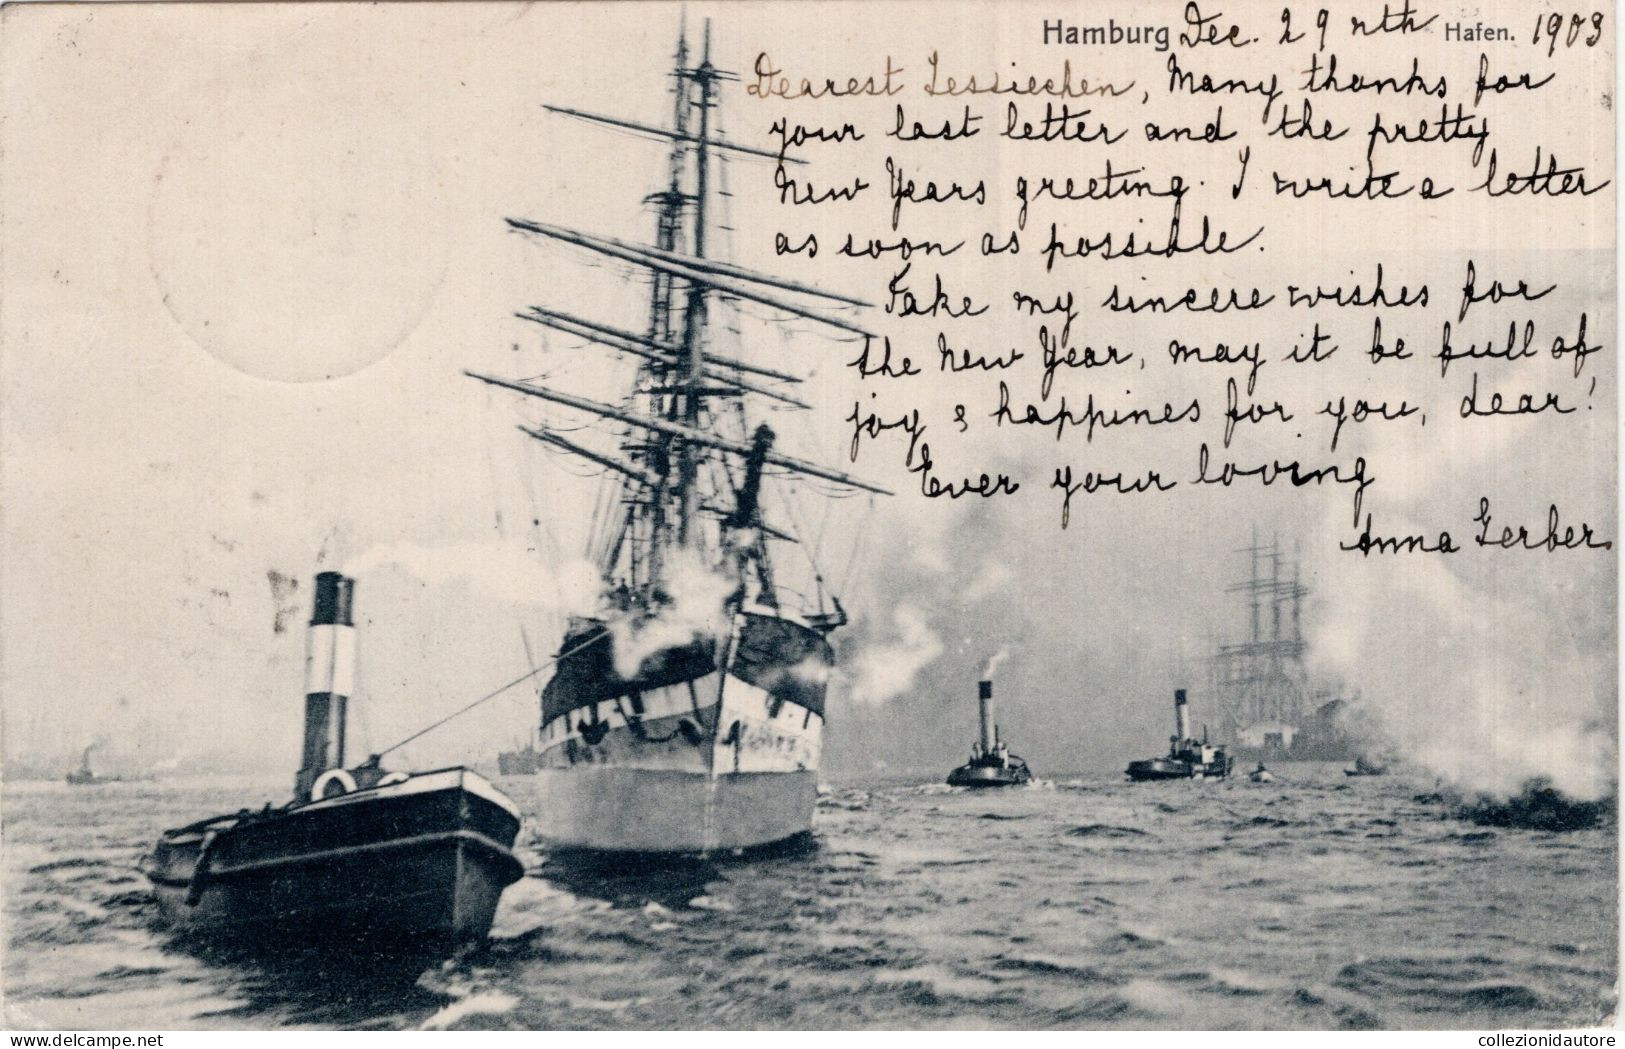 Hamburg Dec. 29 nth Hafen. 1903
Dearest Jessiechen, Many thanks for
your last letter and the pretty
New Years greeting. I write a letter
as soon as possible.
Take my sincere wishes for
the New Year, may it be full of
joy & happines for you, dear!
Ever your loving
Anna Gerber.
collezionidautore
www.delcampe.net